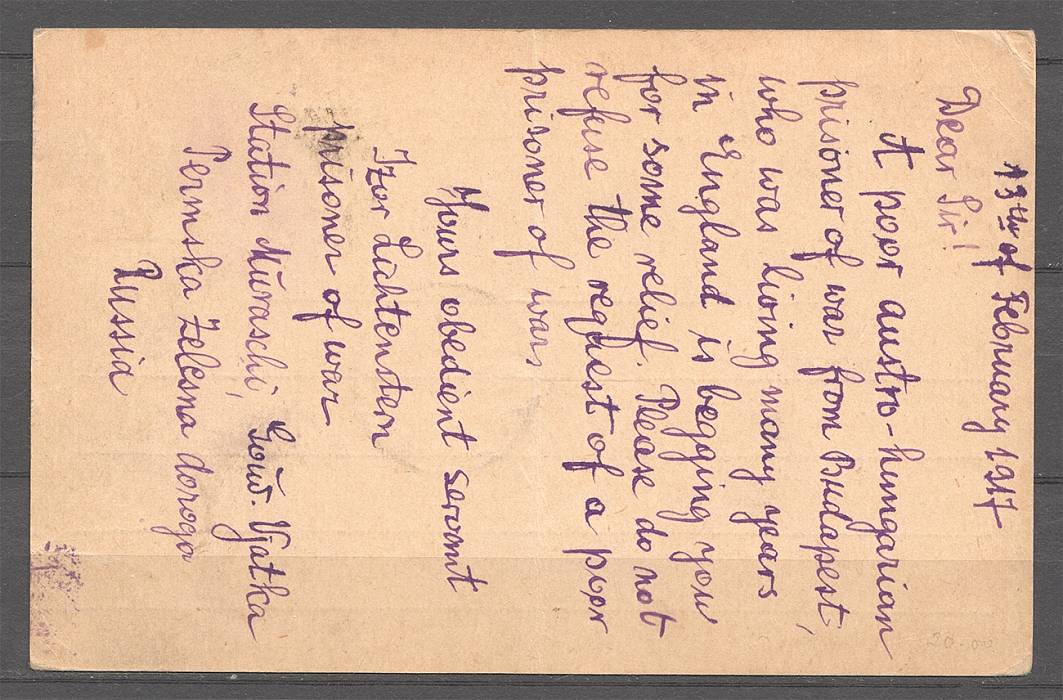 13th of February 1917
Dear Sir!
A poor austro-hungarian
prisoner of war from Budapest,
who was living many years
in England is begging you
for some relief. Please do not
refuse the request of a poor
prisoner of war,
Yours obedient servant
Izor Lichtenstern
prisoner of war
Station Muraschi, Gouv. Vjatka
Permska Zelesna doroga
Russia
20.00